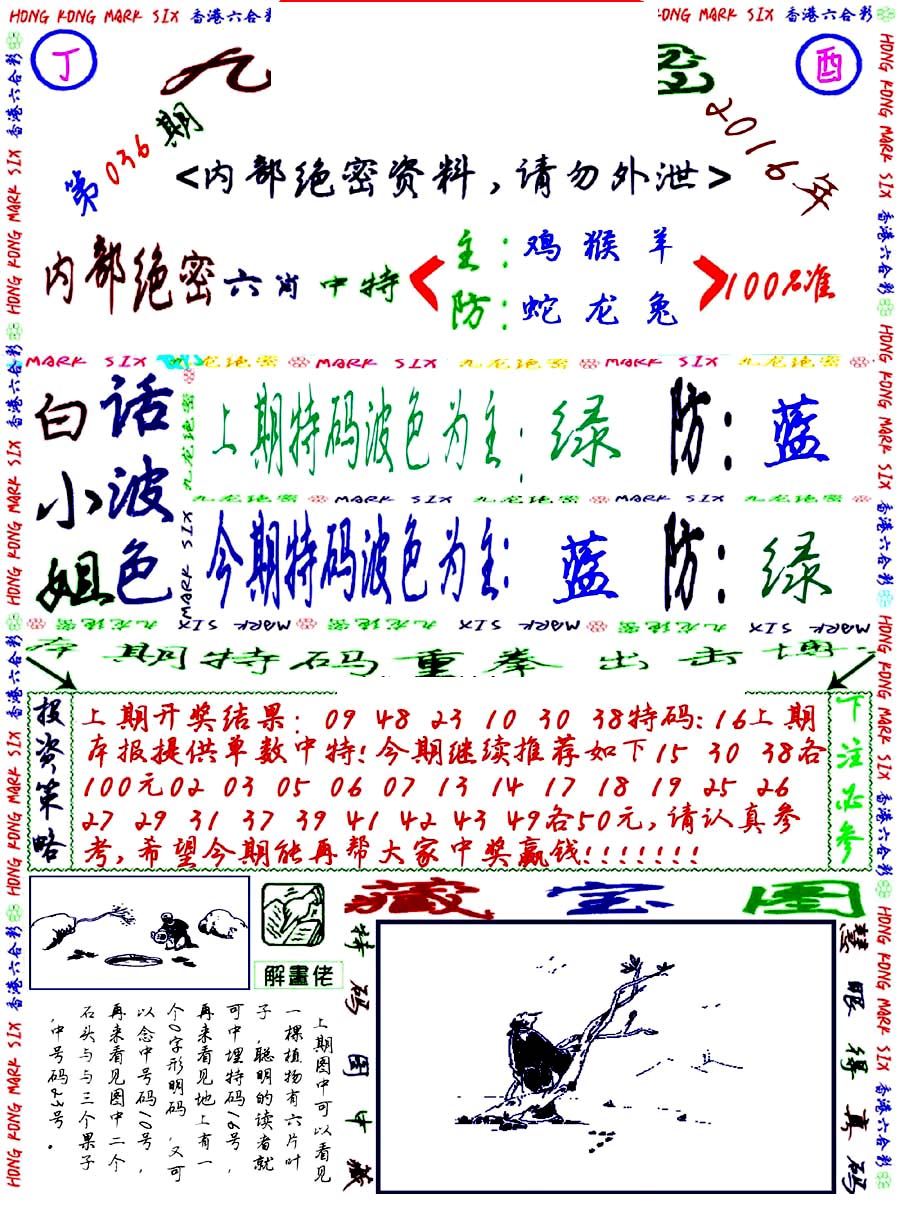 HONG KONG MARK SIX 香港六合彩
丁
九
密
酉
第036期
2016年
<内部绝密资料,请勿外泄>
内部绝密六肖中特
主:鸡猴羊
防:蛇龙兔
100%准
MARK SIX 九龙绝密 MARK SIX 九龙绝密 MARK SIX 九龙绝密
白话
小波
姐色
上期特码波色为主:绿 防:蓝
九龙绝密 MARK SIX 九龙绝密 MARK SIX 九龙绝密
今期特码波色为主:蓝 防:绿
九龙绝密 MARK SIX 九龙绝密 MARK SIX 九龙绝密 MARK SIX
本期特码重拳出击博
投资策略
上期开奖结果:09 48 23 10 30 38特码:16上期
本报提供单数中特!今期继续推荐如下15 30 38各
100元02 03 05 06 07 13 14 17 18 19 25 26
27 29 31 37 39 41 42 43 49各50元,请认真参
考,希望今期能再帮大家中奖赢钱!!!!!!!
下注必参
解畫佬
藏宝图
上期图中可以看见
一棵植物有六片叶
子,聪明的读者就
可中埋特码16号,
再来看见地上有一
个0字形明码,又可
以念中号码10号,
再来看见图中二个
石头与与三个果子
,中号码23号。
特码图中藏
慧眼得真码